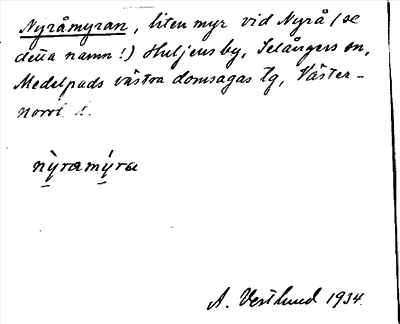 Nyråmyran, liten myr vid Nyrå (se
detta namn!) Huljens by, Selångers sn,
Medelpads västra domsagas tg, Väster-
norrl. l.
nỳramýra
A. Vestlund 1934.